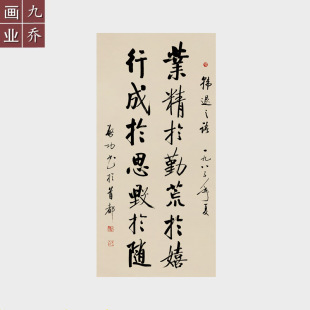 九乔
画业
韩退之语 一九八三年夏
業精於勤荒於嬉
行成於思毀於随
啓功书於首都